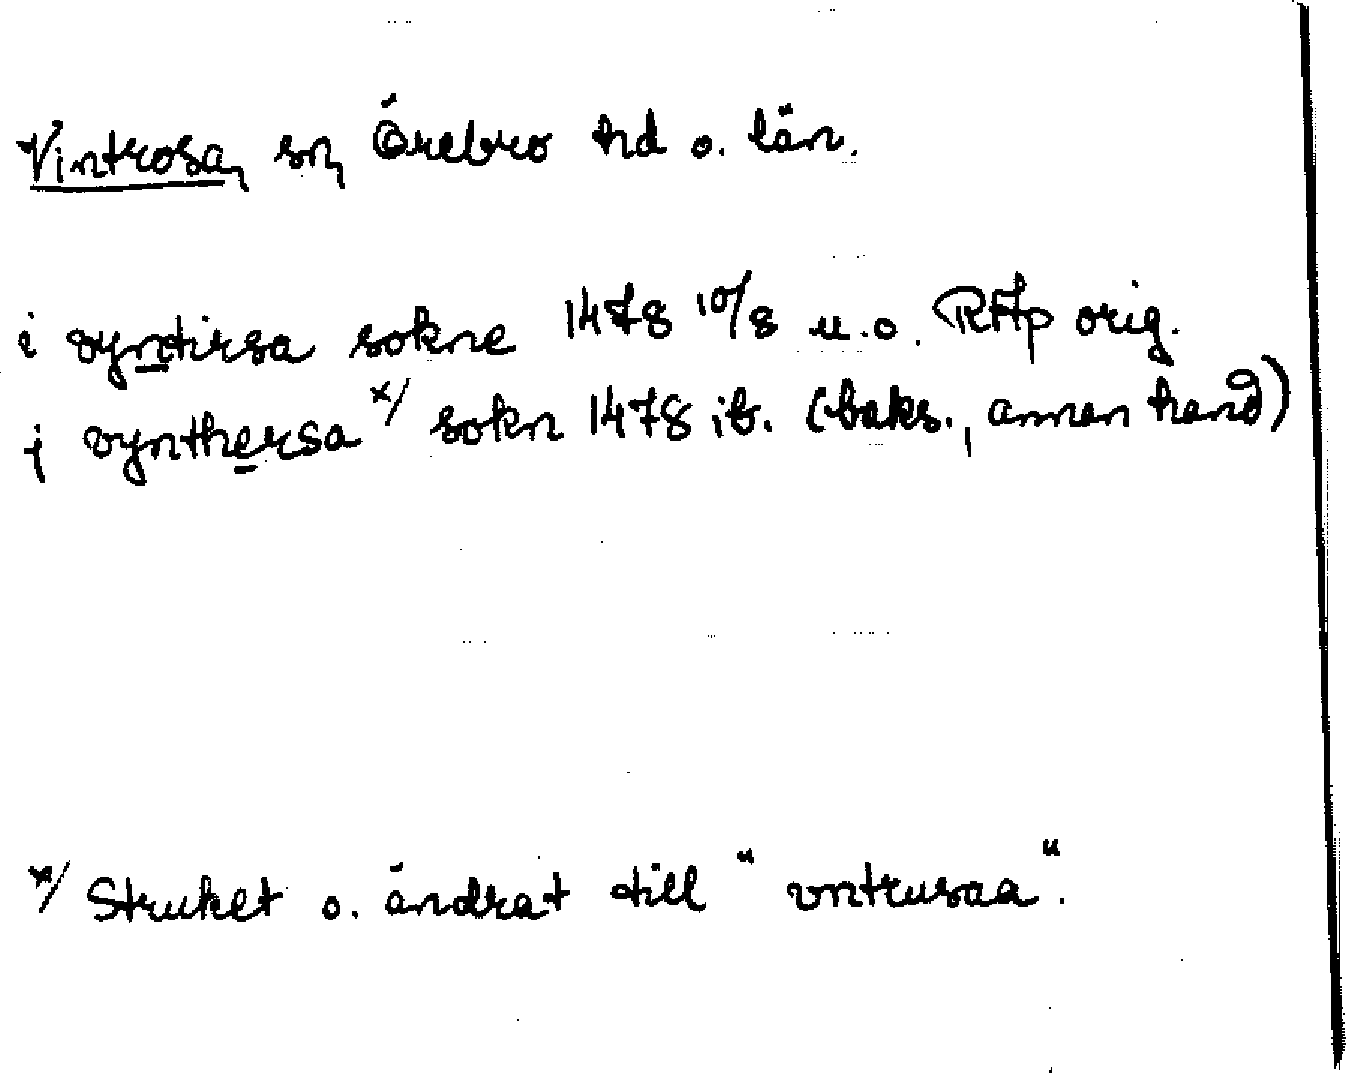 Vintrosa, sn, Örebro hd o. län.
i vyntirsa sokne 1478 10/8 u.o. RAp orig.
j vynthersa x/ sokn 1478 ib. (baks., annan hand)
x/ Struket o. ändrat till "vntrusaa".